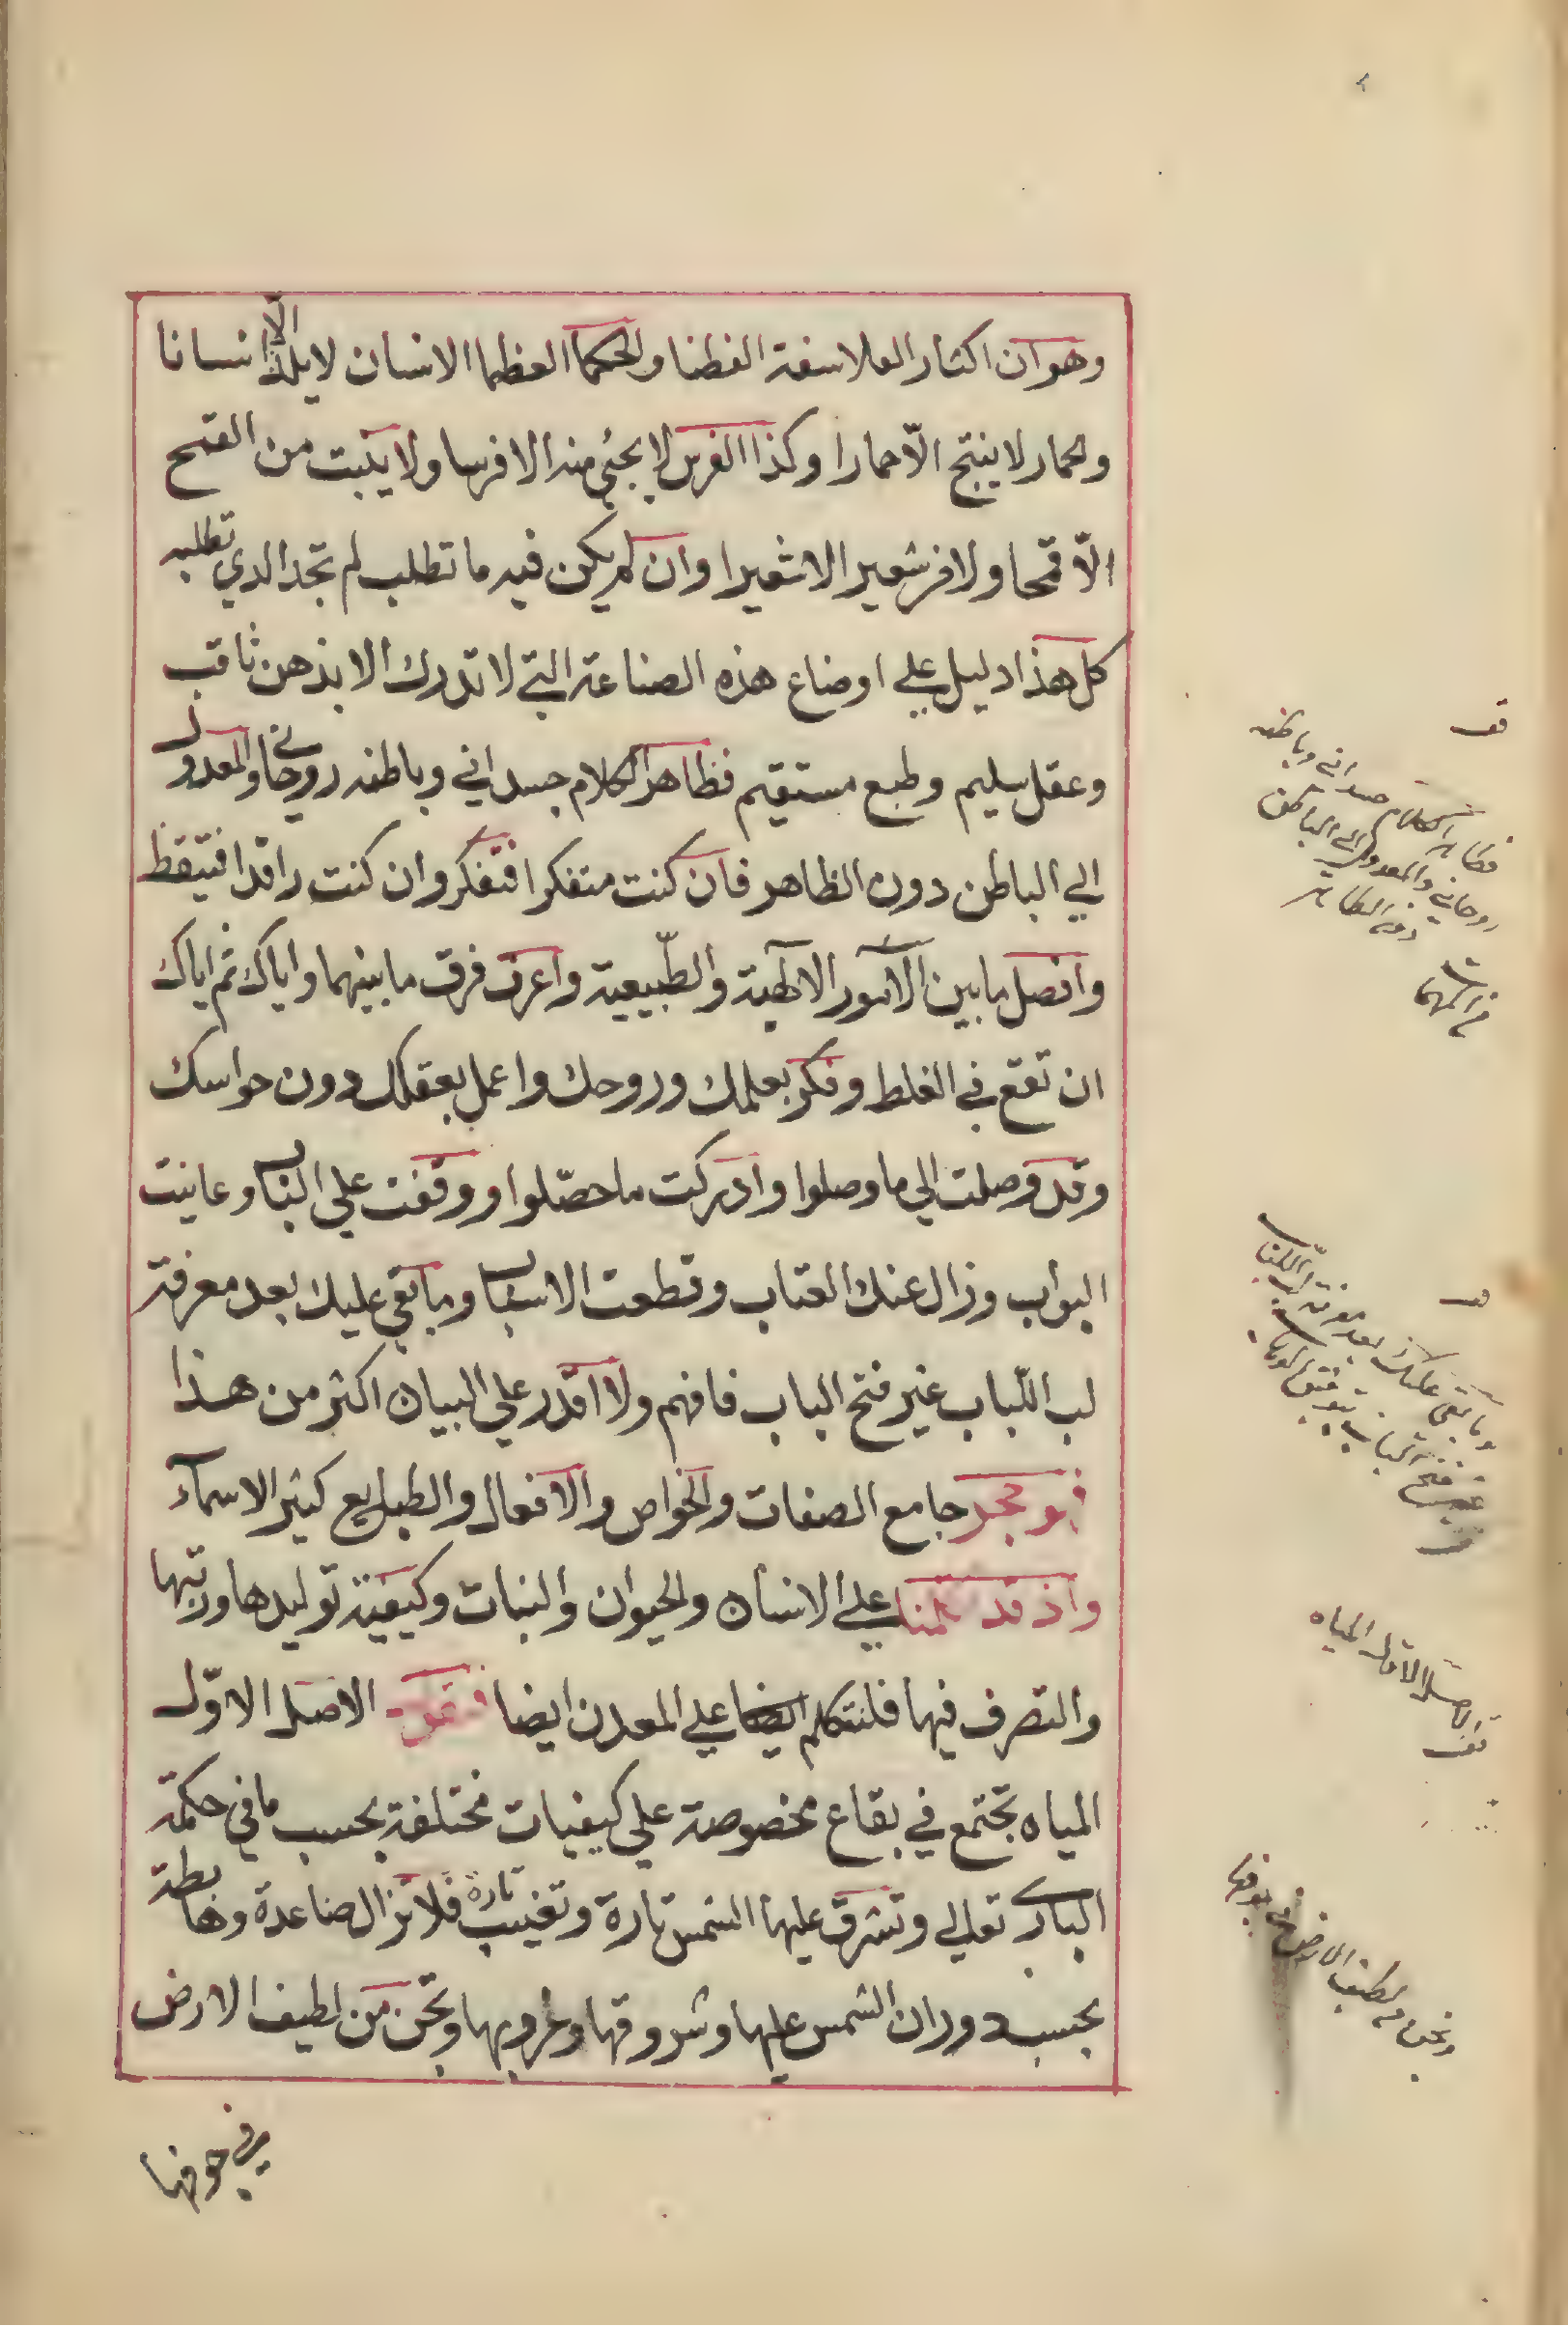 وهو ان اكثار الفلاسفة الفطنا والحكما العظما الانسان لا يلد الّا انسانا
والحمار لا ينتج الّا حمارا وكذا الفرس لا يجئي منه الا فرسا ولا ينبت من القمح
الّا قمحا ولا من شعير الا شعيرا وان لم يكن فيه ما تطلب لم تجد الدي تطلبه
كل هذا دليل علي اوضاع هذه الصناعة التي لا تدرك الا بذهن ثاقب
وعقل سليم وطبع مستقيم فظاهر الكلام جسداني وباطنه روحاني والمعدول
الي الباطن دون الظاهر فان كنت متفكرا فتفكر وان كنت راقدا فتيقظ
وافصل ما بين الامور الالهية والطّبيعية واعرف فرق ما بينهما واياك ثم اياك
ان تقع في الغلط وفكر بعلمك وروحك واعمل بعقلك دون حواسك
وقد وصلت الي ما وصلوا وادركت ما حصّلوا ووقفت علي الباب وعاينت
البواب وزال عنك العتاب وقطعت الاسباب وما بقي عليك بعد معرفة
لب اللّباب غير فتح الباب فافهم ولا اقدر علي البيان اكثر من هذا
فهو حجر جامع الصفات والخواص والافعال والطبايع كثير الاسمآء
واذ قد تكلمنا علي الانسان والحيوان والنبات وكيفية توليدها وربتها
والتصرف فيها فلنتكلم علي المعدن ايضا فنقول الاصل الاوّل
المياه تجتمع في بقاع مخصوصة علي كيفيات مختلفة بحسب ما في حكمة
الباري تعالي وتشرق عليها الشمس تارة وتغيب تارة فلا تزال صاعدة وهابطة
بحسب دوران الشمس عليها وشروقها وغروبها وتحن من لطيف الارض
في جوفها
قف
فظاهر الكلام جسداني وباطنه
روحاني والمعدول الي الباطن
دون الظاهر
قف
وما بقي عليك بعد معرفة لب اللباب
غير فتح الباب
قف الاصل الاول المياه